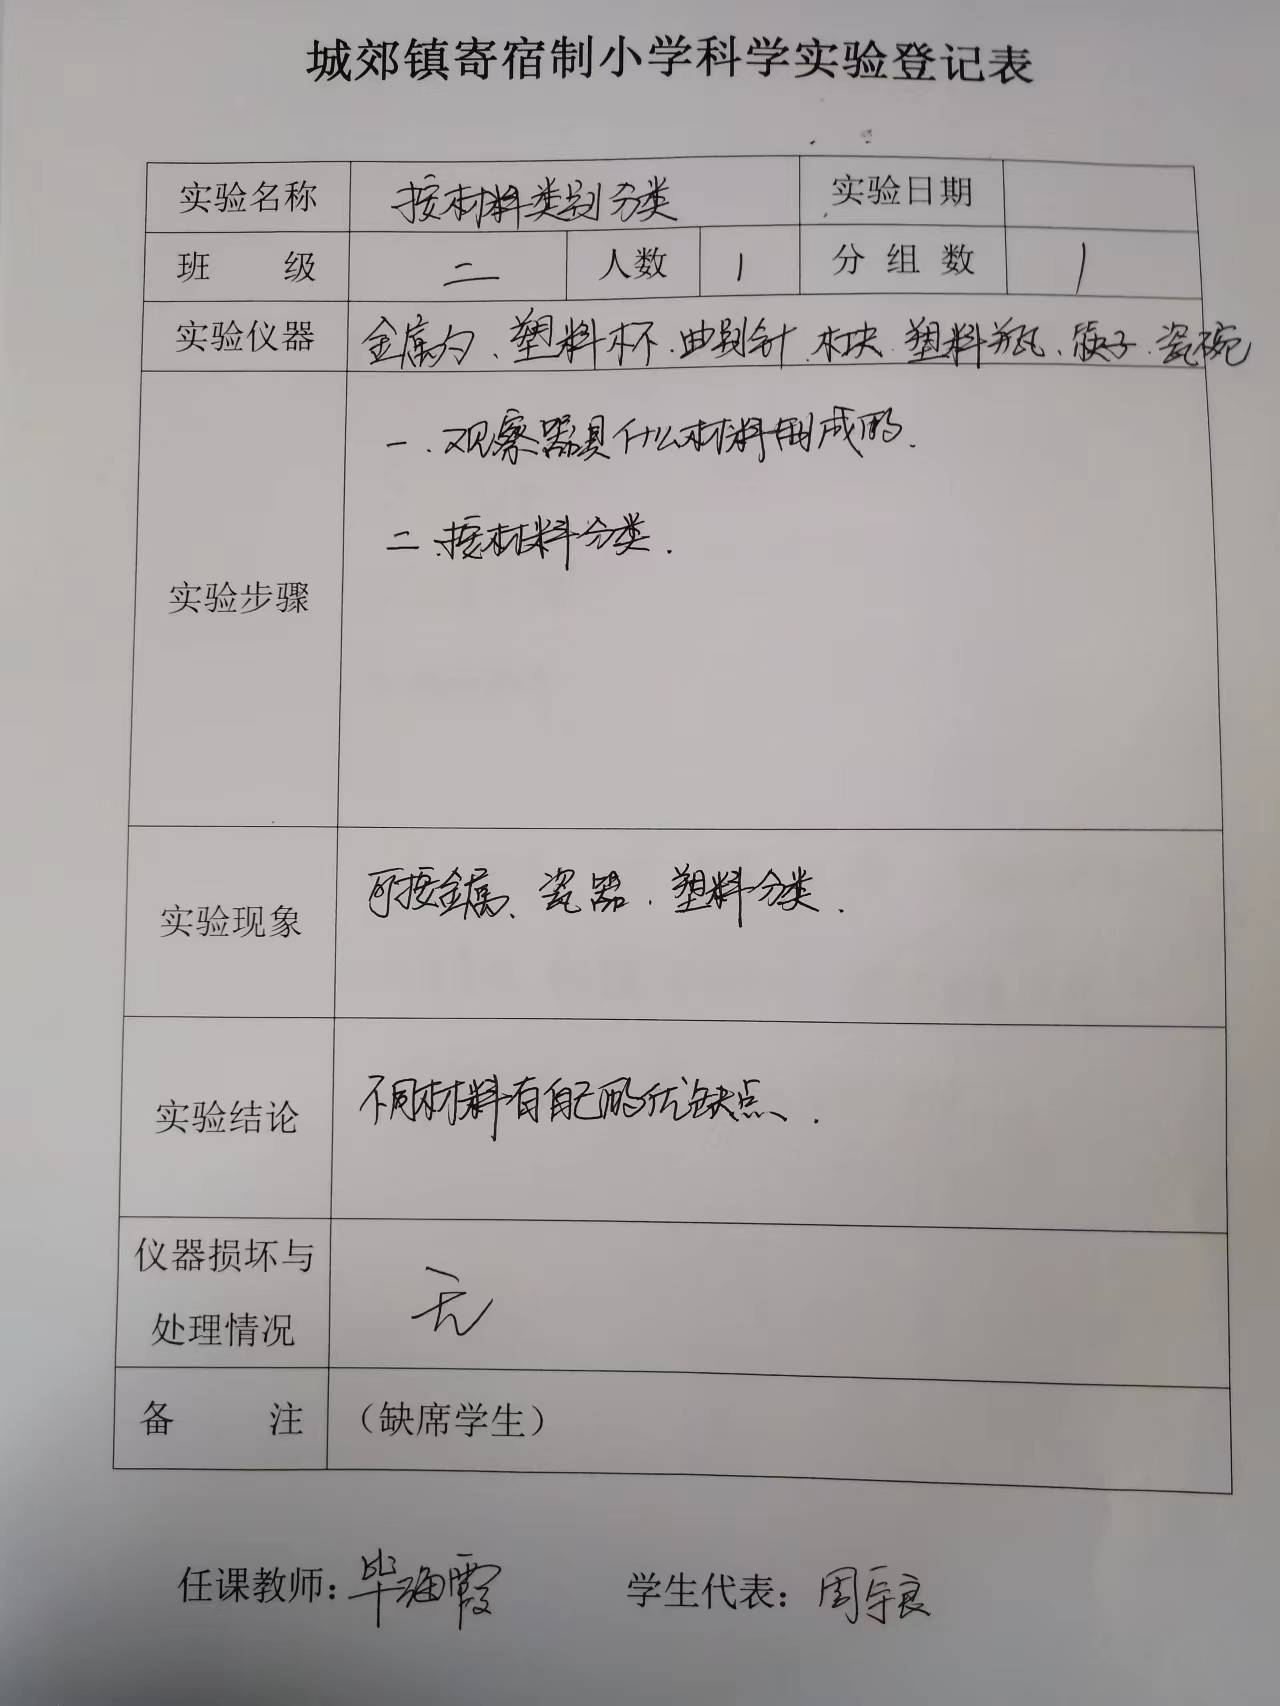 城郊镇寄宿制小学科学实验登记表
实验名称 按材料类别分类 实验日期
班 级 二 人数 1 分组数 1
实验仪器 金属勺、塑料杯.曲别针.木块.塑料瓶、筷子.瓷碗
一.观察器具什么材料制成的.
二.按材料分类.
实验步骤
可按金属、瓷器.塑料分类.
实验现象
不同材料有自己的优缺点、.
实验结论
仪器损坏与
处理情况 无
备 注 (缺席学生)
任课教师:毕海霞 学生代表:周良